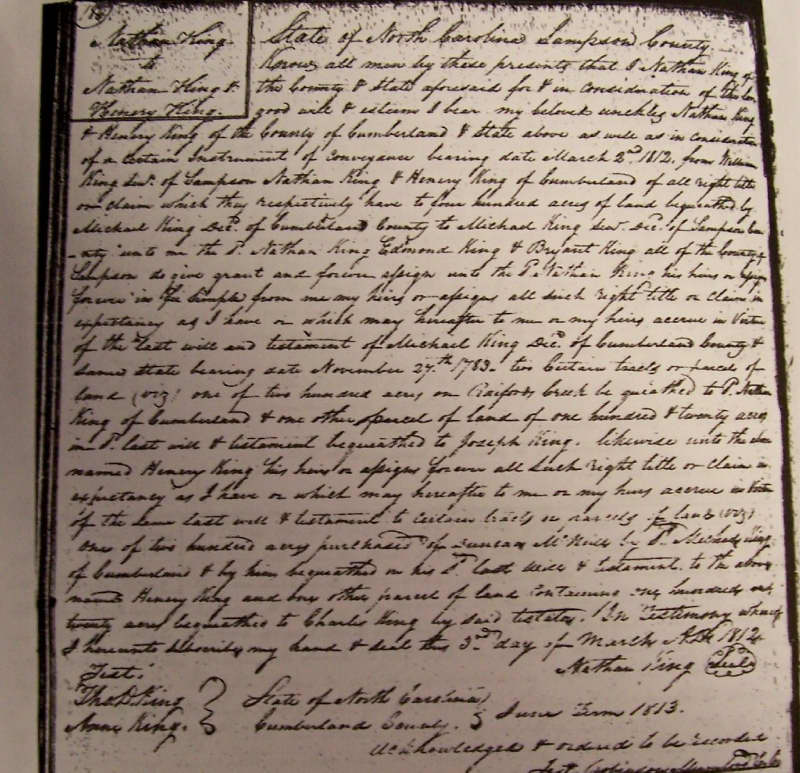 Nathan King
to
Nathan King &
Henery King.
State of North Carolina Sampson County
Know all men by these presents that I Nathan King of
the County & State aforesaid for & in consideration of the
good will & esteem I bear my beloved uncles Nathan King
& Henery King of the County of Cumberland & State above as well as in consideration
of a certain Instrument of conveyance bearing date March 2nd 1812, from William
King Senr. of Sampson Nathan King & Henery King of Cumberland of all right title
or claim which they respectively have to four hundred acres of land bequeathed by
Michael King Decd. of Cumberland County to Michael King Senr. Decd. of Sampson Cou
-nty unto me the Sd. Nathan King Edmond King & Bryant King all of the County of
Sampson do give grant and forever assign unto the Sd. Nathan King his heirs or assigns
forever in Fee Simple from me my heirs or assigns all such right title or claim in
expectancy as I have or which may hereafter to me or my heirs accrue in Virtue
of the last will and testament of Michael King Decd. of Cumberland County &
same state bearing date November 27th 1783. two Certain tracts or parcels of
land (viz) one of two hundred acres on Raifords Creek bequeathed to Sd. Nathan
King of Cumberland & one other parcel of land of one hundred & twenty acres
in Sd. last will & testament bequeathed to Joseph King. likewise unto the above
named Henery King his heirs or assigns forever all such right title or claim in
expectancy as I have or which may hereafter to me or my heirs accrue in Virtue
of the same last will & testament to certain tracts or parcels of land (viz)
one of two hundred acres purchased of Duncan McNeill by Sd. Michael King
of Cumberland & by him bequeathed in his Sd. last will & testament to the above
named Henery King and one other parcel of land containing one hundred and
twenty acres bequeathed to Charles King by said testator. In Testimony whereof
I hereunto subscribe my hand & seal this 3rd day of March 1812
Nathan King Seal
Test.
Thos. D. King
Anne King.
State of North Carolina
Cumberland County.
June Term 1813.
Acknowledged & ordered to be recorded
Test